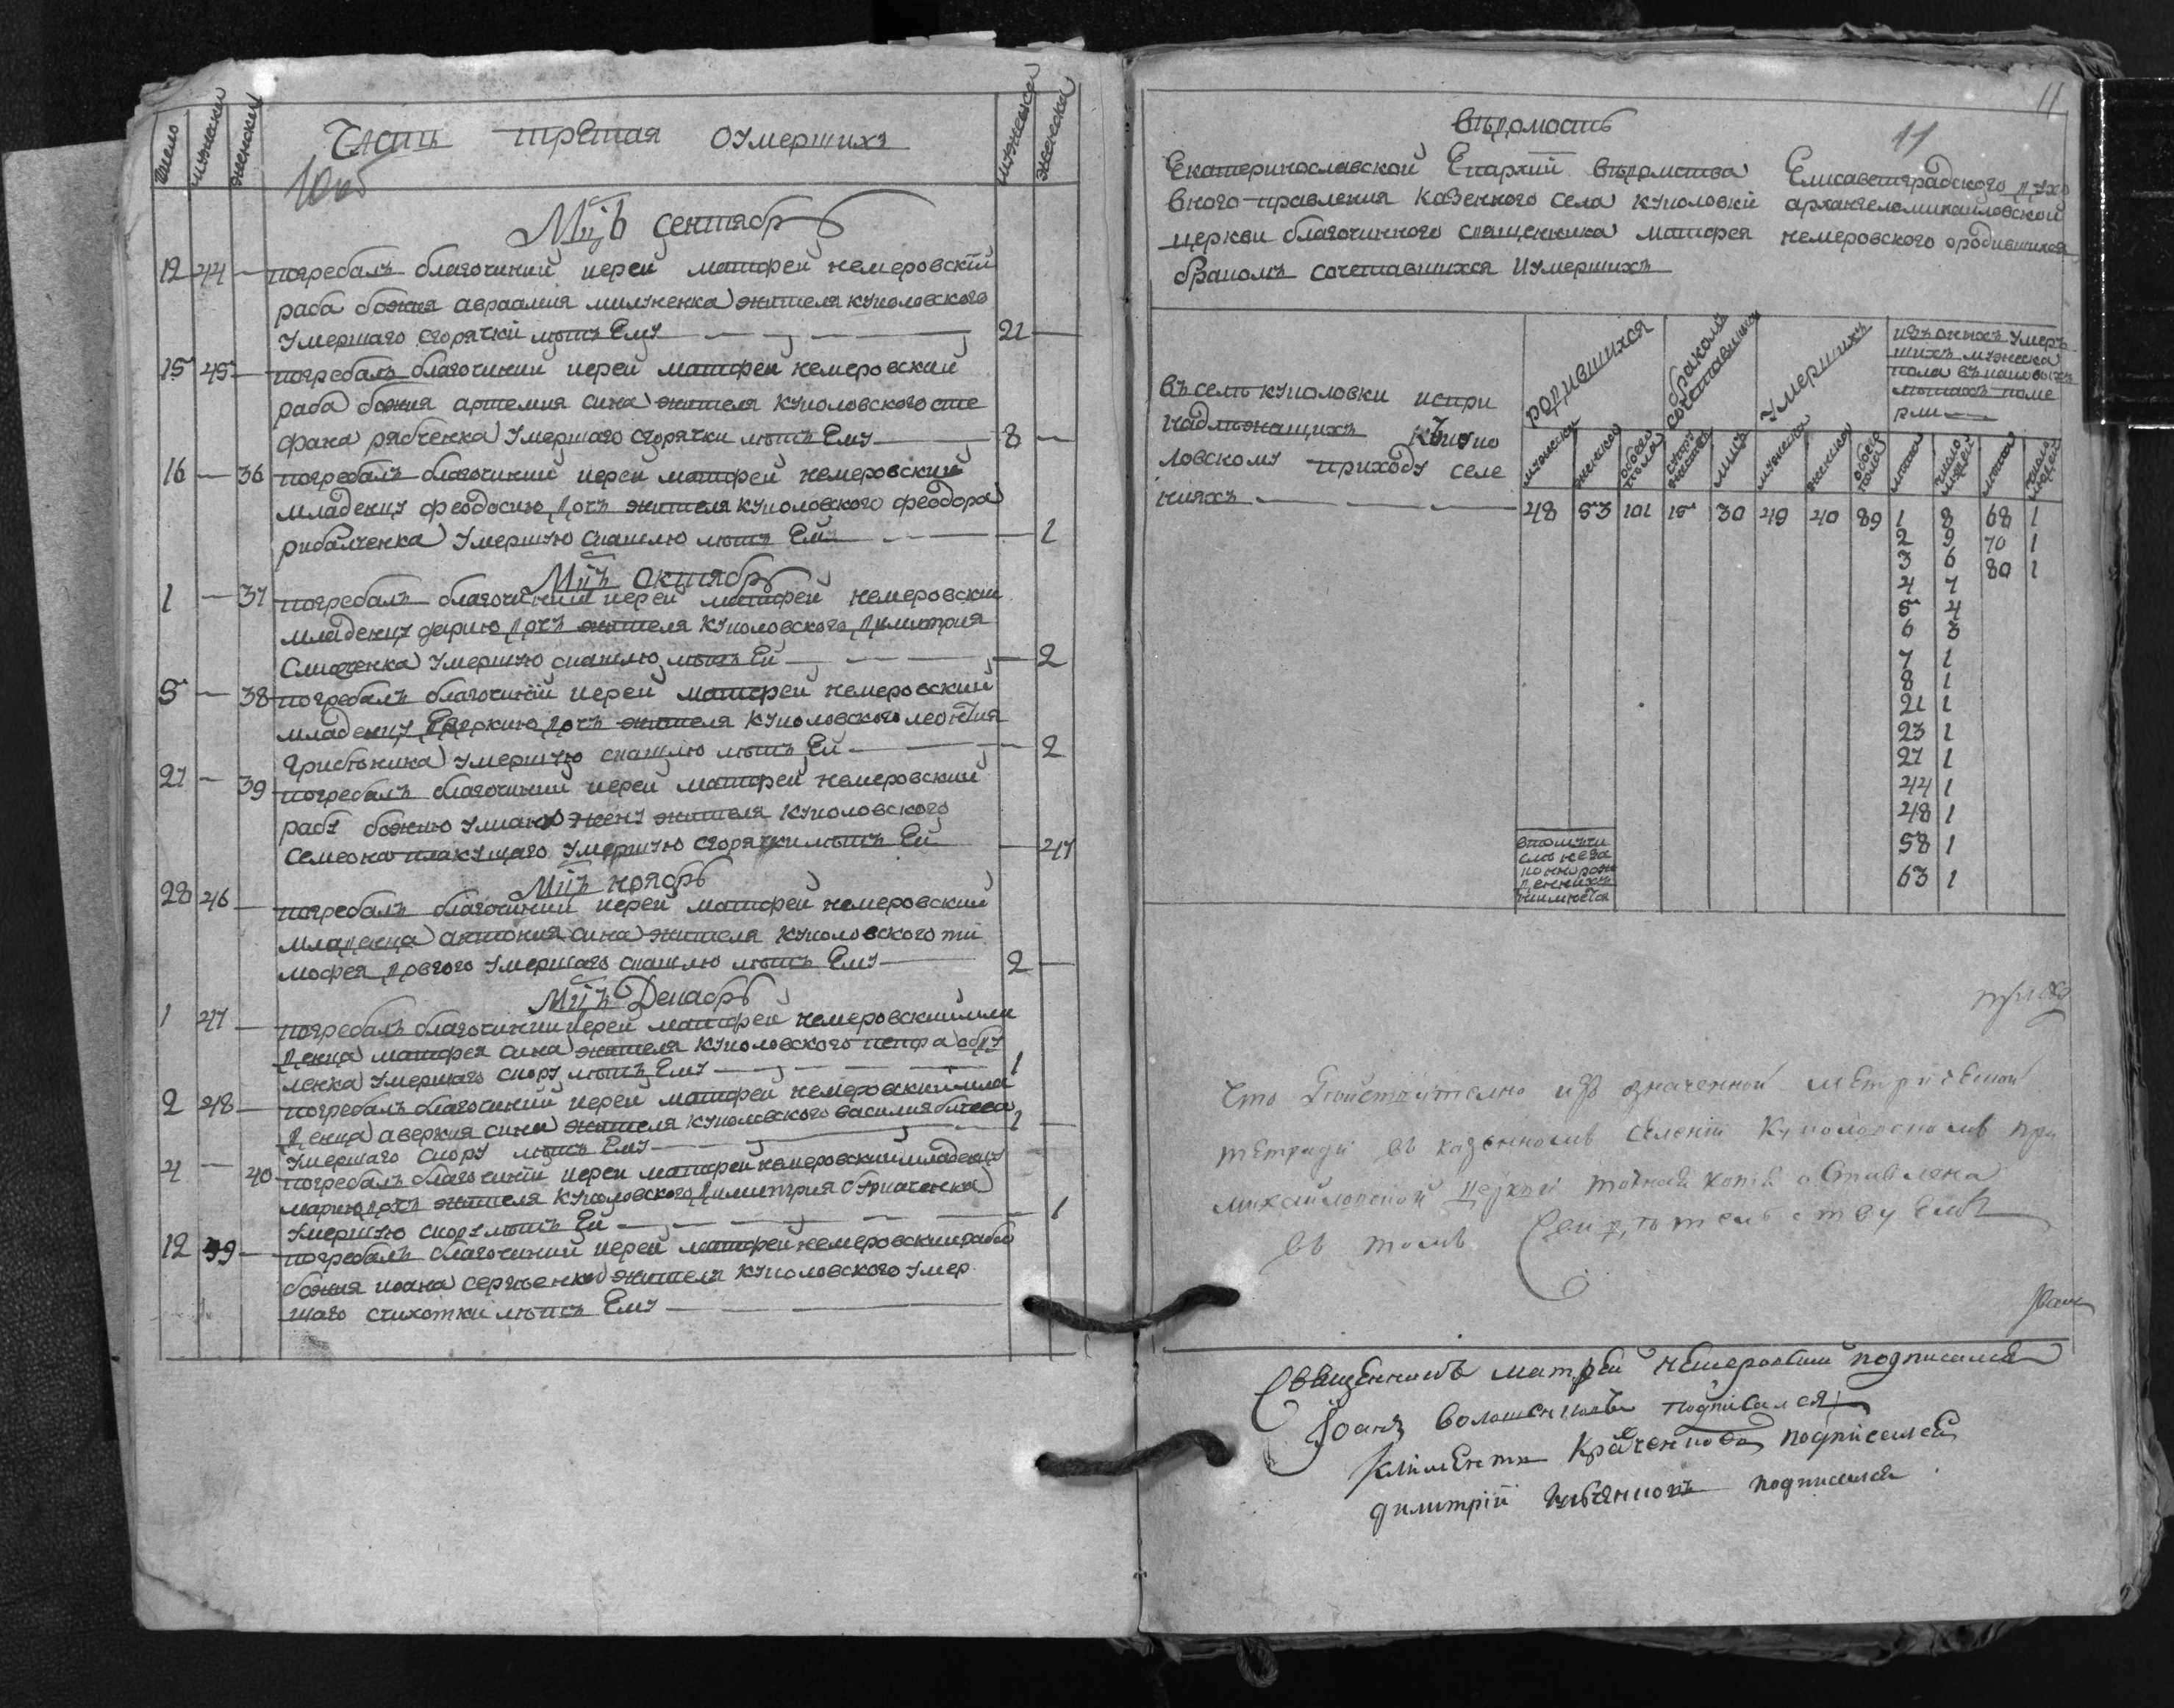 число мужеска женска Часть третая о умершихъ мужеска женска
10об
Мцъ сентябрь
12 44 — погребалъ благочиний иерей матфей немеровскїй
раба божия авраамия милуненка жителя куполовского
умершаго сгорячкй лѣтъ Ему 21 —
15 45 — погребалъ благочиний иерей матфей немеровский
раба божия артемия сина жителя куполовского сте
фана рябченка умершаго сгорячки лѣтъ Ему 8 —
16 — 36 погребалъ благочиний иерей матфей немеровский
младенцу феодосию дочь жителя куполовского феодора
рибалченка умершую скашлю лѣтъ Ей — 1
Мцъ октябрь
1 — 37 погребалъ благочиний иерей матфей немеровский
младенцу дарию дочь жителя куполовского димитрия
умершую скашлю лѣтъ Ей — 2
5 — 38 погребалъ благочиний иерей матфей немеровский
младенцу дочь жителя куполовского леонтия
умершую скашлю лѣтъ Ей — 2
27 — 39 погребалъ благочиний иерей матфей немеровский
рабу божию улиану жену жителя куполовского
семеона плакущаго умершую сгорячки лѣтъ Ей — 27
Мцъ ноябрь
28 46 — погребалъ благочиний иерей матфей немеровский
младенца антония сина жителя куполовского ти
мофея довгого умершаго скашлю лѣтъ Ему 2 —
Мцъ Декабрь
1 47 — погребалъ благочиний иерей матфей немеровский мла
денца матфея сина жителя куполовского петра
ленка умершаго скору лѣтъ Ему 1
2 48 — погребалъ благочиний иерей матфей немеровский мла
денца аверкия сина жителя куполовского василия
умершаго скору лѣтъ Ему —
4 — 40 погребалъ благочиний иерей матфей немеровский младенцу
марию дочь жителя куполовского димитрия
умершую скору лѣтъ Ей — 1
12 49 — погребалъ благочиний иерей матфей немеровский раба
божия иоана сергѣенка жителя куполовского умер
шаго счихотки лѣтъ Ему
11
11
вѣдомость
Екатеринославской Епархий вѣдомства Елисаветградского духо
вного правления казенного села куполовкй архангеломихайловской
церкви благочинного священника матфея немеровского ородившихся
бракомъ сочетавшихся иумершихъ
въселѣ куполовки ипри
надлѣжащихъ купо
ловскому приходу селе
нияхъ
родившихся бракомъ сочетавшихся умершихъ изъ онихъ умеръ
шихъ мужеска
пола въкаковыхъ
лѣтахъ поме
рли
мужеска женска обоего пола лицъ мужеска женска обоего пола лѣта число людей лѣта число людей
48 53 101 15 30 49 40 89 1 8 68 1
2 9 70 1
3 6 80 1
4 7
5 4
6 3
7 1
8 1
21 1
23 1
27 1
44 1
48 1
58 1
63 1
Что Действително изъ означенной метрической
тетради въ казенномъ селенїи Куполовскомъ при
михайловской церкви точная копѣ оставлена
въ томъ свидѣтельствуемъ
Священникъ матфей немеровский подписался
Іоанъ волошенковъ подписался
Климентъ подписался
димитрїй подписался